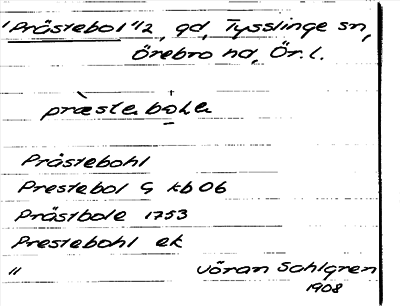 'Prästebol 1/2, gd, Tysslinge sn,
Örebro hd, Ör. l.
præ̀steb
Prästebohl
Prestebol G kb 06
Prästbole 1753
Prestebohl ek
" Jöran Sahlgren
1908